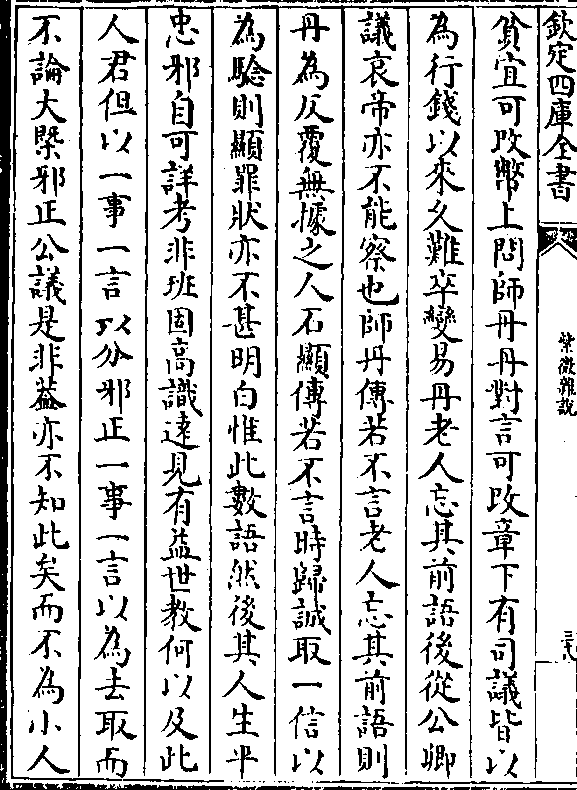 欽定四庫全書
紫微雜說
貧宜可改幣上問師丹丹對言可改章下有司議皆以
為行錢以來久難卒變易丹老人忘其前語後從公卿
議哀帝亦不能察也師丹傳若不言老人忘其前語則
丹為反覆無據之人石顯傳若不言時歸誠取一信以
為驗則顯罪狀亦不甚明白惟此數語然後其人生平
忠邪自可詳考非班固高識遠見有益世教何以及此
人君但以一事一言以分邪正一事一言以為去取而
不論大槩邪正公議是非葢亦不知此矣而不為小人